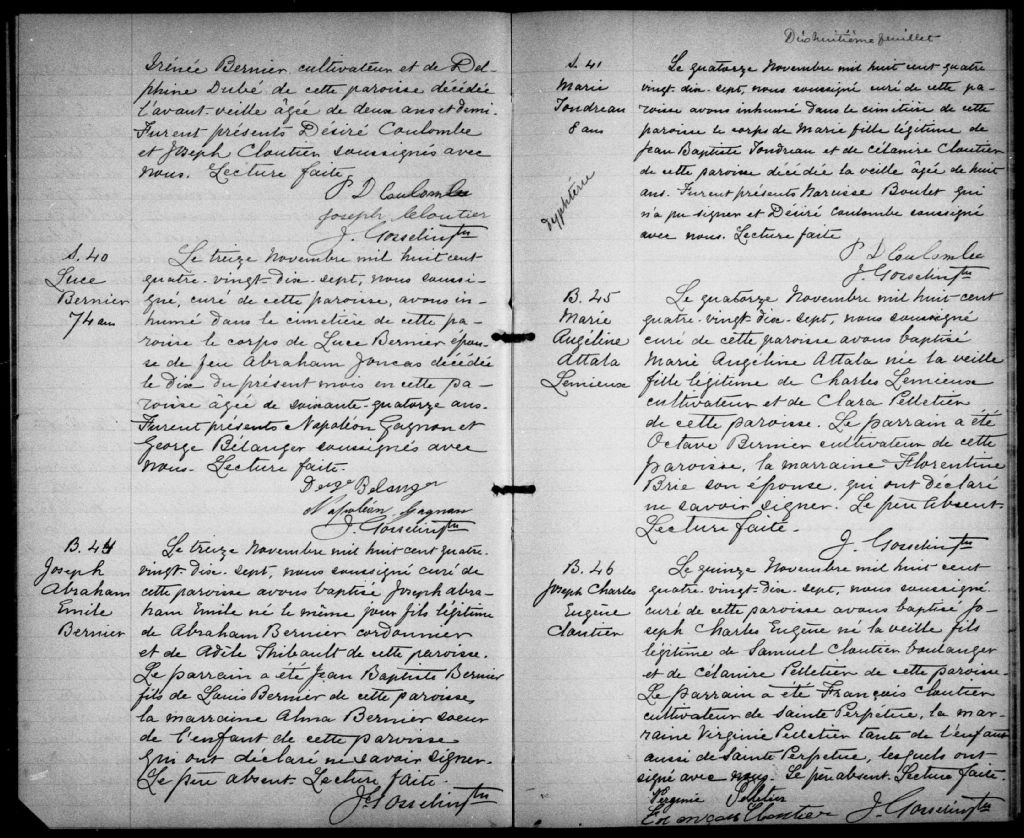 Irénée Bernier, cultivateur et de Del-
phine Dubé de cette paroisse décédée
l'avant-veille âgée de deux ans et demi.
Furent présents Désiré Coulombe
et Joseph Cloutier soussignés avec
nous. Lecture faite.
P D Coulombe
Joseph Cloutier
J. Gosselin ptre
S. 40
Luce
Bernier
74 ans
Le treize Novembre mil huit cent
quatre-vingt-dix-sept, nous soussi-
gné, curé de cette paroisse, avons in-
humé dans le cimetière de cette pa-
roisse le corps de Luce Bernier épou-
se de feu Abraham Joncas décédée
le dix du présent mois en cette pa-
roisse âgée de soixante-quatorze ans.
Furent présents Napoléon Gagnon et
George Bélanger soussignés avec
nous. Lecture faite.
Belanger
Napoléon Gagnon
J. Gosselin ptre
B. 44
Joseph
Abraham
Emile
Bernier
Le treize Novembre mil huit cent quatre-
vingt-dix-sept, nous soussigné curé de
cette paroisse avons baptisé Joseph Abra-
ham Emile né le même jour fils légitime
de Abraham Bernier cordonnier
et de Adèle Thibault de cette paroisse.
Le parrain a été Jean Baptiste Bernier
fils de Louis Bernier de cette paroisse,
la marraine Alma Bernier soeur
de l'enfant de cette paroisse
qui ont déclaré ne savoir signer.
Le père absent. Lecture faite.
J. Gosselin ptre
Dixhuitième feuillet
S. 41
Marie
Tondreau
8 ans
dyphtérie
Le quatorze Novembre mil huit cent quatre
vingt-dix-sept, nous soussigné curé de cette pa-
roisse avons inhumé dans le cimitière de cette
paroisse le corps de Marie fille légitime de
Jean Baptiste Tondreau et de Célanire Cloutier
de cette paroisse décédée la veille âgée de huit
ans. Furent présents Narcisse Boulet qui
n'a pu signer et Désiré Coulombe soussigné
avec nous. Lecture faite
P D Coulombe
J. Gosselin ptre
B. 45
Marie
Angéline
Attala
Lemieux
Le quatorze Novembre mil huit-cent
quatre-vingt-dix-sept, nous soussigné
curé de cette paroisse avons baptisé
Marie Angéline Attala née la veille
fille légitime de Charles Lemieux
cultivateur et de Clara Pelletier
de cette paroisse. Le parrain a été
Octave Bernier cultivateur de cette
paroisse, la marraine Florentine
Brie son épouse, qui ont déclaré
ne savoir signer. Le père absent.
Lecture faite.
J. Gosselin ptre
B. 46
Joseph Charles
Eugène
Cloutier
Le quinze Novembre mil huit cent
quatre-vingt-dix-sept, nous soussigné
curé de cette paroisse avons baptisé Jo-
seph Charles Eugène né la veille fils
légitime de Samuel Cloutier boulanger
et de Célanire Pelletier de cette paroisse.
Le parrain a été François Cloutier
cultivateur de Sainte Perpétue, la mar-
raine Virginie Pelletier tante de l'enfant
aussi de Sainte Perpetue, lesquels ont
signé avec nous. Le père absent. Lecture faite.
Virginie Pelletier
François Cloutier
J. Gosselin ptre